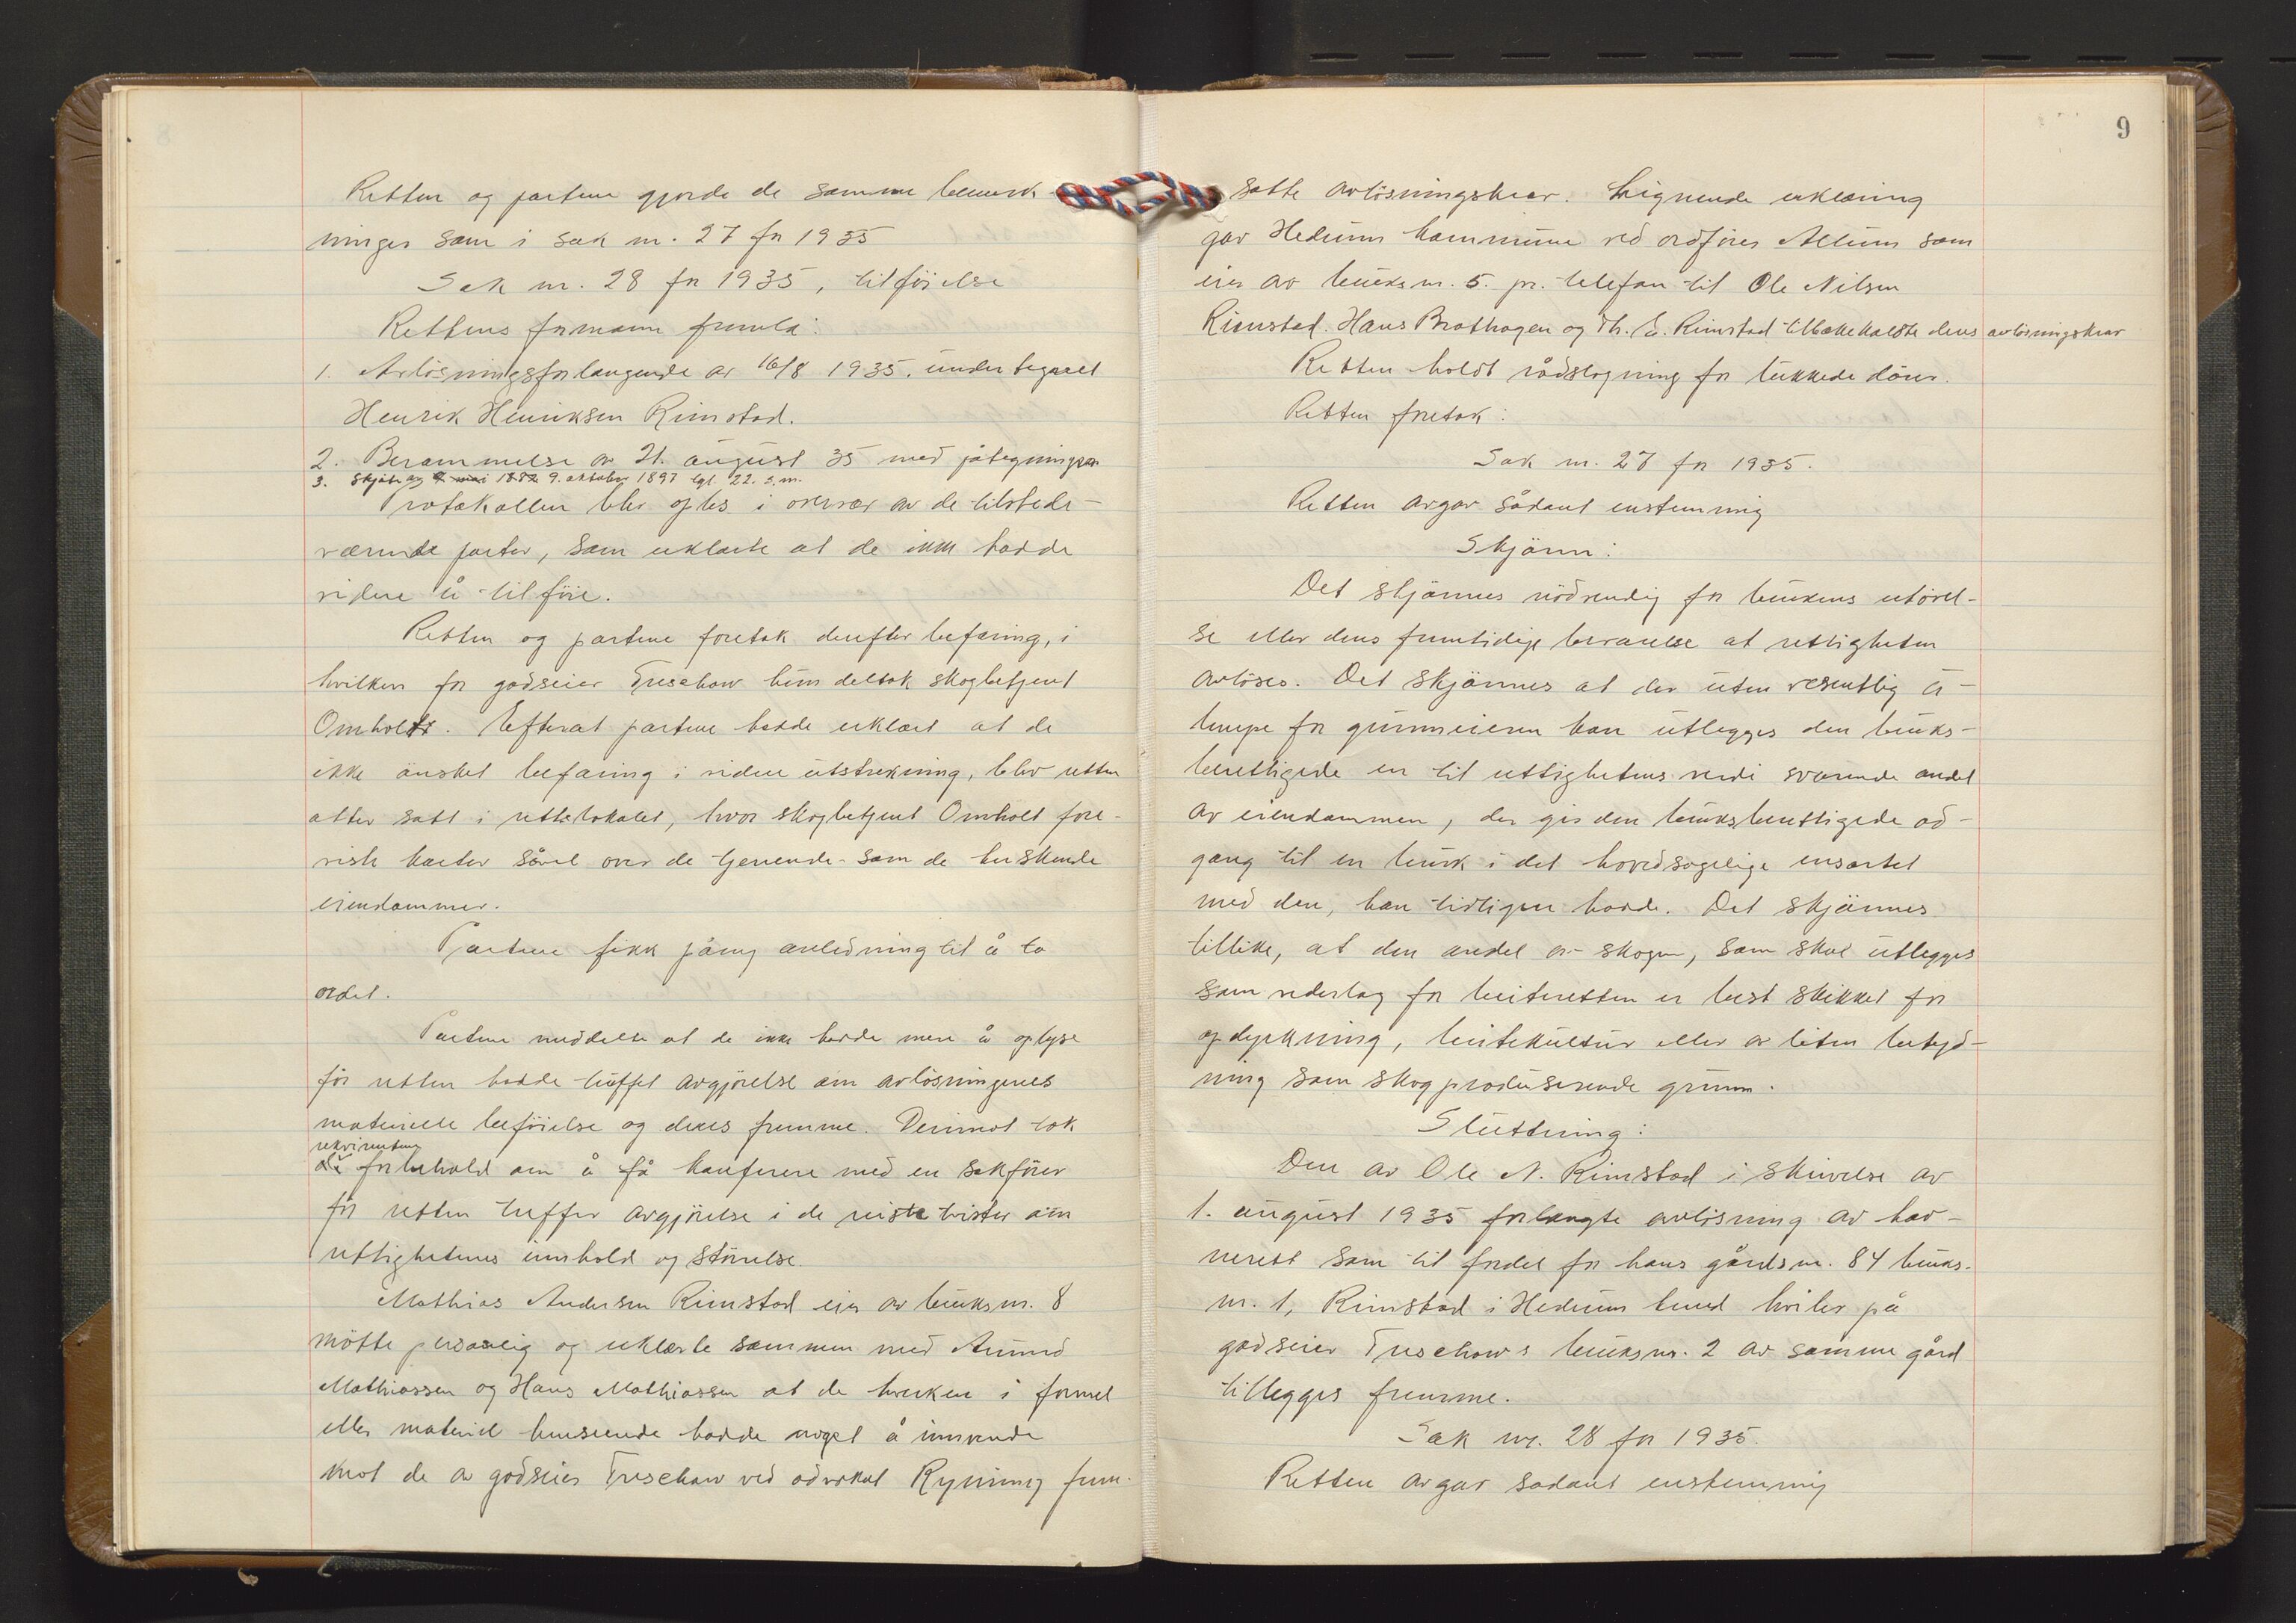 Retten og partene gjorde de samme bemerk-
ninger som i sak nr. 27 for 1935
Sak nr. 28 for 1935, tilföielse
Rettens formann fremla:
1. Avlösningsforlangende av 16/8 1935, undertegnet
Henrik Henriksen Rimstad.
2. Berammelse av 21. august 35 med påtegninger
3. Skjöte av 9. oktober 1897 tgl. 22. s.m.
Protokollen blev oples i overvær av de tilstede-
værende parter, som erklærte at de ikke hadde
videre å tilföie.
Retten og partene foretok derefter befaring, i
hvilken for godseier Treschow kun deltok skogbetjent
Omholt. Efterat partene hadde erklært at de
ikke önsket befaring i videre utstrekning, blev retten
atter satt i rettslokalet, hvor skogbetjent Omholt fore-
viste karter såvel over de tjenende som de herskende
eiendommer.
Partene fikk påny anledning til å ta
ordet.
Partene meddelte at de ikke hadde mere å oplyse
för retten hadde truffet avgjörelse om avlösningenes
materielle beföielse og deres fremme. Derimot tok
rekvirentene
de forbehold om å få konferere med en sakförer
för retten treffer avgjörelse i de reiste tvister om
rettighetenes innhold og störrelse.
Mathias Andersen Rimstad eier av bruksnr. 8
mötte personlig og erklærte sammen med Amund
Mathiassen og Hans Mathiassen at de hverken i formel
eller materiel henseende hadde noget å innvende
mot de av godseier Treschow ved advokat Ryning frem-
satte avlösningskrav. Lignende erklæring
gav Hedrum kommune ved ordförer Allum som
eier av bruksnr. 5. pr. telefon til Ole Nilsen
Rimstad. Hans Brathagen og Th. E. Rimstad tilbakekaldte deres avlösningskrav
Retten holdt rådslagning for lukkede dörer.
Retten foretok:
Sak nr. 27 for 1935.
Retten avgav sådant enstemmig
Skjönn:
Det skjönnes nödvendig for brukens utövel-
se eller dens fremtidige bevarelse at rettigheten
avlöses. Det skjönnes at der uten vesentlig u-
lempe for grunneieren kan utlegges den bruks-
berettigede en til rettighetens verdi svarende andel
av eiendommen, der gir den bruksberettigede ad-
gang til en bruk i det hovedsagelige ensartet
med den, han tidligere hadde. Det skjönnes
tillike, at den andel av skogen, som skal utlegges
som vederlag for beiteretten er best skikket for
opdyrkning, beitekultur eller av liten betyd-
ning som skogproduserende grunn.
Sluttning:
Den av Ole N. Rimstad i skrivelse av
1. august 1935 forlangte avlösning av hav-
nerett som til fordel for hans gårdsnr. 84 bruks-
nr. 1, Rimstad i Hedrum herred hviler på
godseier Treschow's bruksnr. 2 av samme gård
tillegges fremme.
Sak nr. 28 for 1935.
Retten avgav sådant enstemmig
9